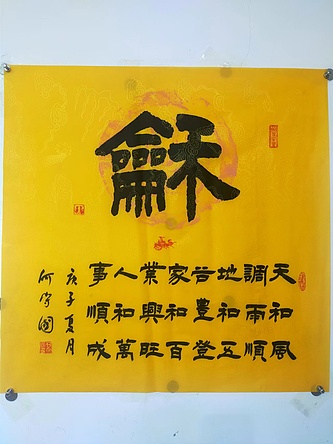 龢
天和風
調雨順
地和五
谷豐登
家和百
業興旺
人和萬
事順成
庚子夏月
何守國